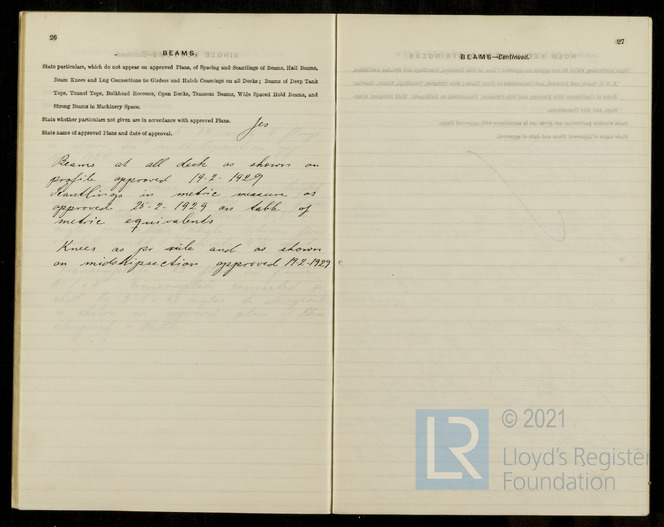 26
BEAMS.
State particulars, which do not appear on approved Plans, of Spacing and Scantlings of Beams, Half Beams,
Beam Knees and Lug Connections to Girders and Hatch Coamings on all Decks; Beams of Deep Tank
Tops, Tunnel Tops, Bulkhead Recesses, Open Decks, Transom Beams, Wide Spaced Hold Beams, and
Strong Beams in Machinery Space.
State whether particulars not given are in accordance with approved Plans. Yes
State name of approved Plans and date of approval.
Beams at all deck as shown on
profile approved 19-2-1929
Scantlings in metric measure as
approved 25-2-1929 on table of
metric equivalents
Knees as per rule and as shown
on midshipsection approved 19-2-1929
27
BEAMS—Continued.
LR
© 2021
Lloyd's Register
Foundation